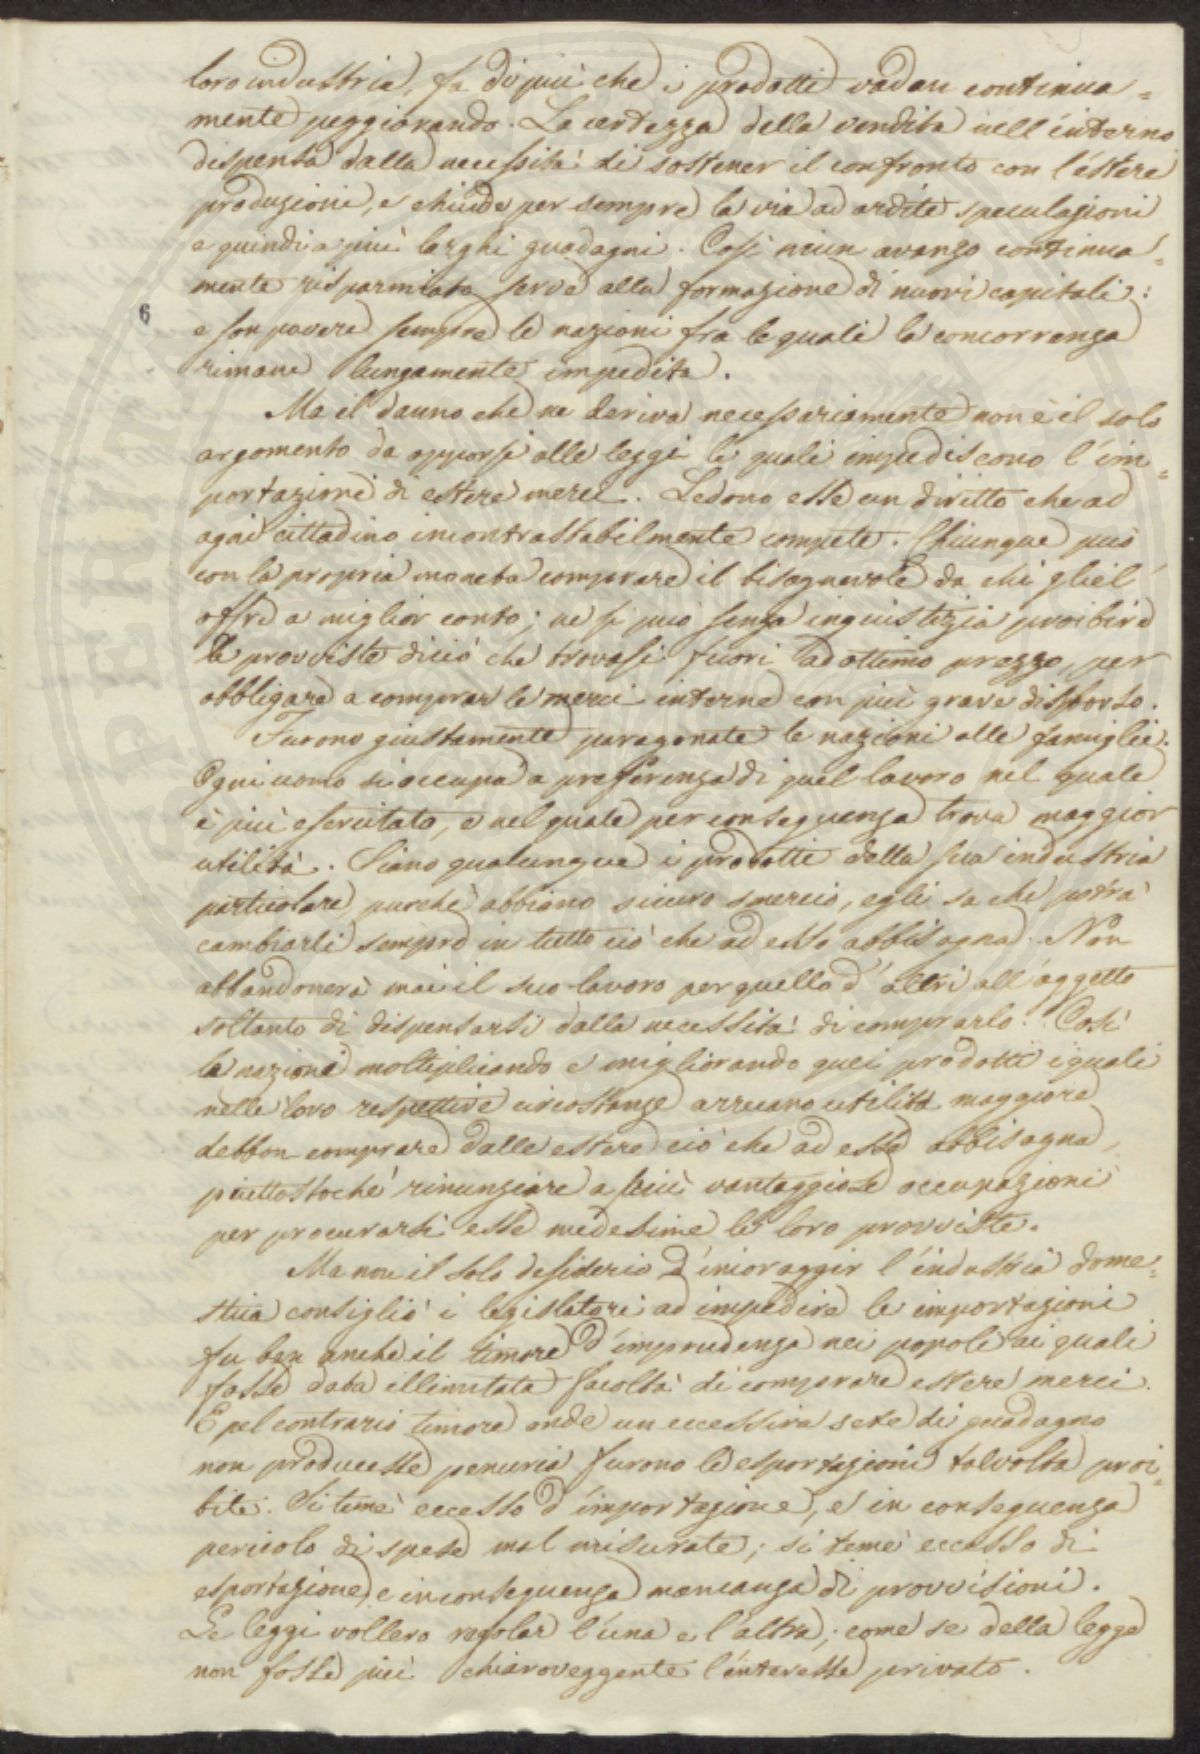 loro industria, fa di più che i prodotti vadan continua=
mente peggiorando. La certezza della vendita nell'interno
dispensa dalla necessità di sostener il confronto con l'estere
produzioni, e chiude per sempre la via ad ardite speculazioni
e quindi a più larghi guadagni. Così niun avanzo continua=
mente risparmiato serve alla formazione di nuovi capitali:
6
e son povere sempre le nazioni fra le quali la concorrenza
rimane lungamente impedita.
Ma il danno che ne deriva necessariamente non è il solo
argomento da opporsi alle leggi le quali impediscono l'im=
portazione di estere merci. Ledono esse un diritto che ad
ogni cittadino incontrastabilmente compete. Chiunque può
con la propria moneta comprare il bisognevole da chi gliel'
offre a miglior conto; ne si può senza ingiustizia proibire
le provviste di ciò che trovasi fuori ad ottimo prezzo, per
obbligare a comprar le merci interne con più grave disborso.
Furono giustamente paragonate le nazioni alle famiglie.
Ogni uomo si occupa a preferenza di quel lavoro nel quale
è più esercitato, e nel quale per conseguenza trova maggior
utilità. Siano qualunque i prodotti della sua industria
particolare, purchè abbiano sicuro smercio, egli sa che potrà
cambiarli sempre in tutto ciò che ad esso abbisogna. Non
abbandonerà mai il suo lavoro per quello d'altri all'oggetto
soltanto di dispensarsi dalla necessità di comprarlo. Così
le nazioni moltiplicando e migliorando quei prodotti i quali
nelle loro respettive circostanze arrecano utilità maggiore
debbon comprare dalle estere ciò che ad esse abbisogna,
piuttostochè rinunziare a più vantaggiose occupazioni
per procurarsi esse medesime le loro provviste.
Ma non il solo desiderio d'incoraggir l'industria dome=
stica consigliò i legislatori ad impedire le importazioni
fu ben anche il timore d'imprudenza nei popoli ai quali
fosse data illimitata facoltà di comprare estere merci.
E pel contrario timore onde un eccessiva sete di guadagno
non producesse penuria furono le esportazioni talvolta proi=
bite. Si temè eccesso d'importazione, e in conseguenza
pericolo di spese mal misurate; si temè eccesso di
esportazione, e in conseguenza mancanza di provvisioni.
Le leggi vollero regolar l'una e l'altra; come se della legge
non fosse più chiaroveggente l'interesse privato.